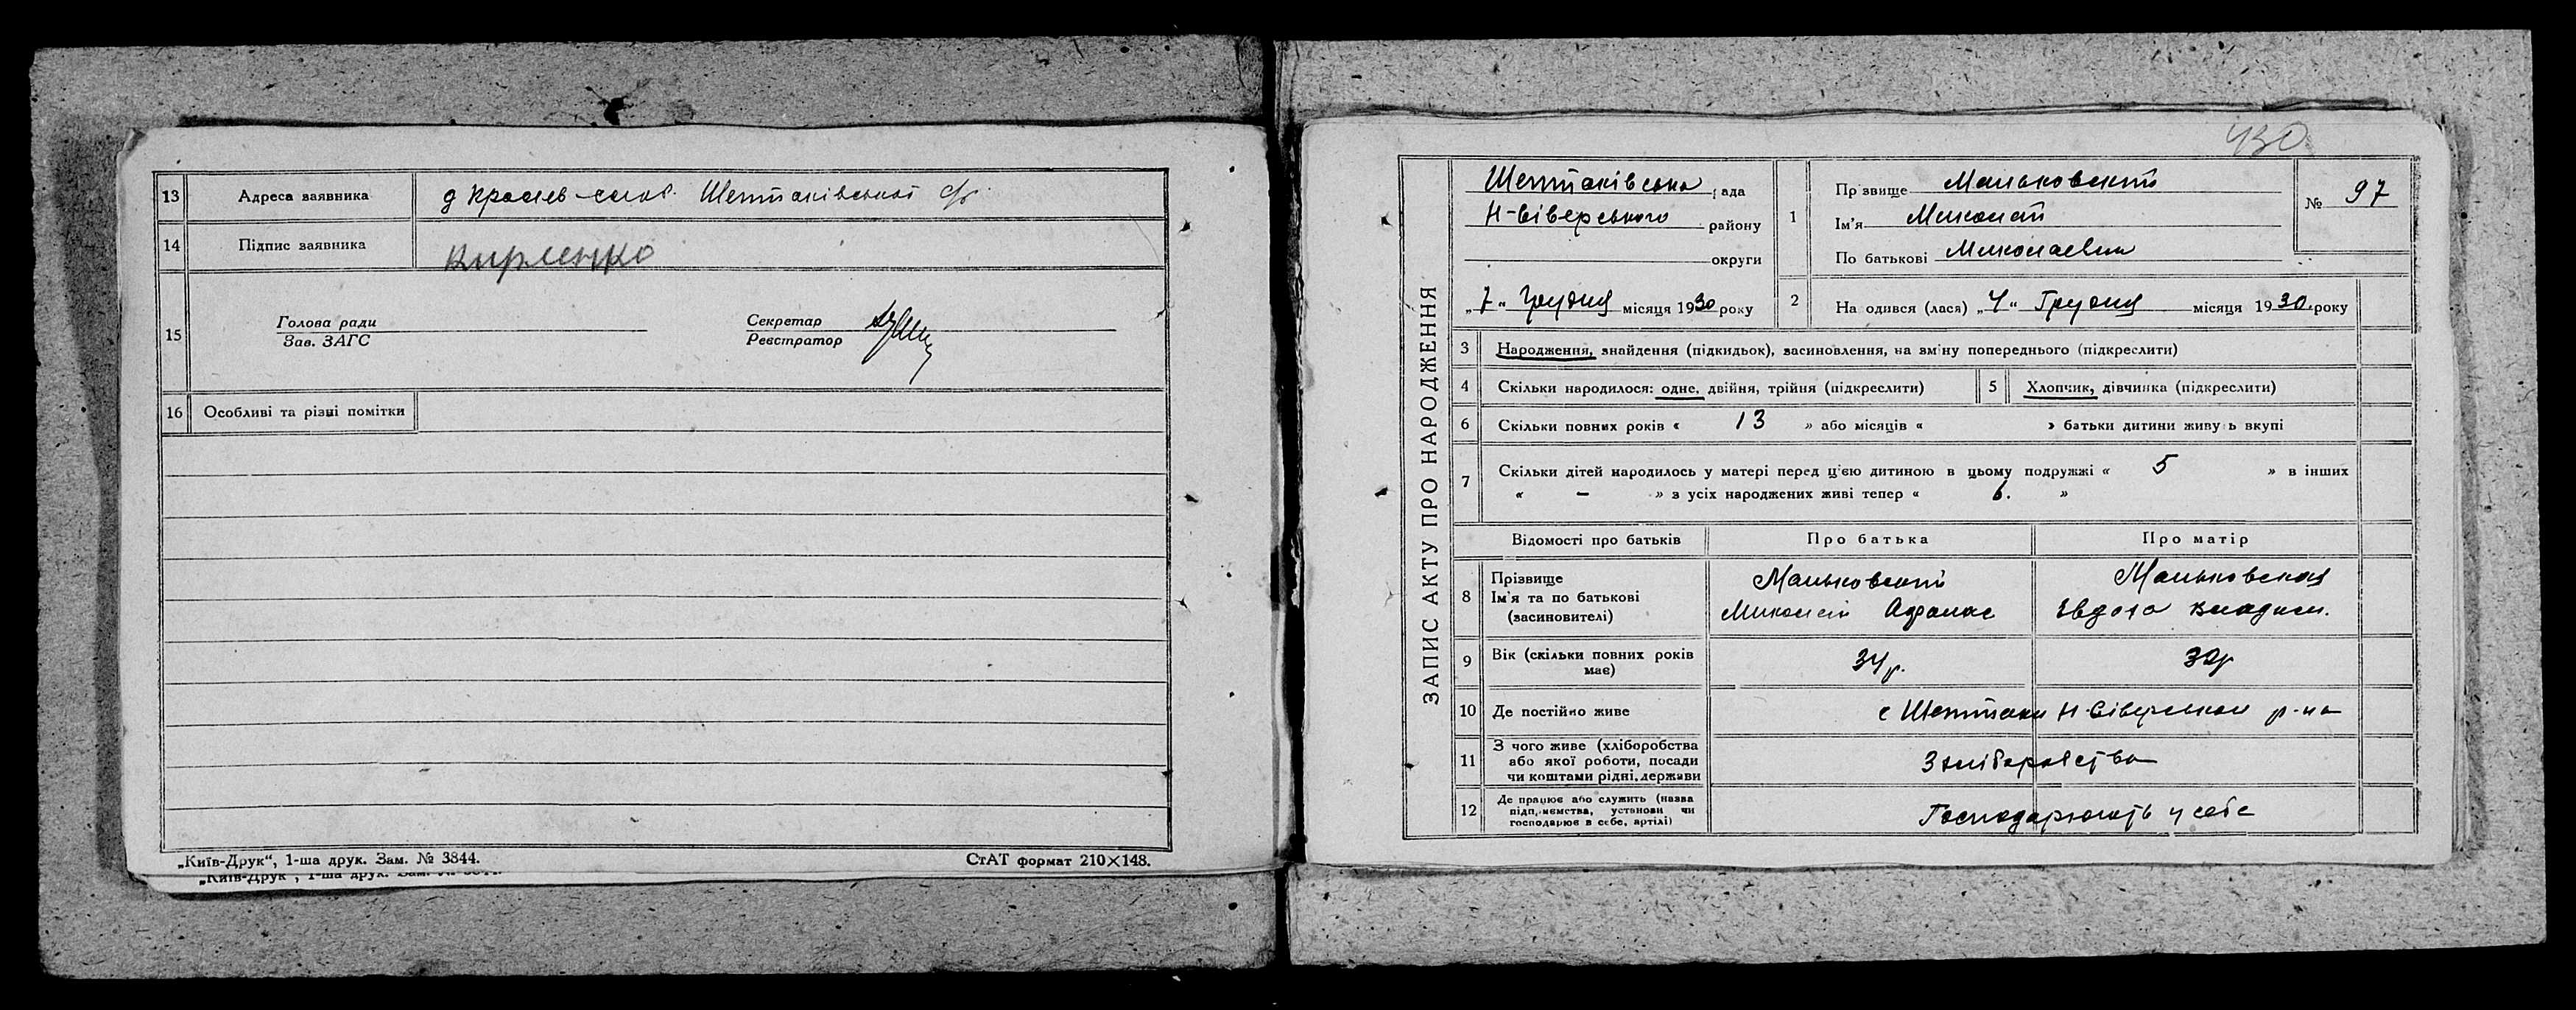 13 Адреса заявника д Кролев-слоб. Шептаківської с/р.
14 Підпис заявника Кириенко
15 Голова ради
Зав. ЗАГС
Секретар
Реєстратор
16 Особливі та різні помітки
„Київ-Друк“, 1-ша друк. Зам. № 3844.
СтАТ формат 210×148.
430
ЗАПИС АКТУ ПРО НАРОДЖЕННЯ
Шептаківська рада
Н-Сіверського району
округи
„7“ Грудня місяця 1930 року
1 Прізвище Маньковский
Ім'я Миколай
По батькові Миколаевич
№ 97
2 Народився (лася) „4“ Грудня місяця 1930 року
3 Народження, знайдення (підкидьок), засиновлення, на зміну попереднього (підкреслити)
4 Скільки народилося: одне, двійня, трійня (підкреслити)
5 Хлопчик, дівчинка (підкреслити)
6 Скільки повних років « 13 » або місяців « » батьки дитини живуть вкупі
7 Скільки дітей народилось у матері перед ц'єю дитиною в цьому подружжі « 5 » в інших
« – » з усіх народжених живі тепер « 6. »
Відомості про батьків Про батька Про матір
8 Прізвище
Ім'я та по батькові
(засиновителі)
Маньковский
Миколай Афанас
Маньковская
Евдоха Владим.
9 Вік (скільки повних років
має)
34 р. 30 р
10 Де постійно живе с Шептаки Н-Сіверськои р-на
11 З чого живе (хліборобства
або якої роботи, посади
чи коштами рідні, держави
З хліборобства
12 Де працює або служить (назва
підприємства, установи чи
господарює в себе, артілі)
Господарюють у себе